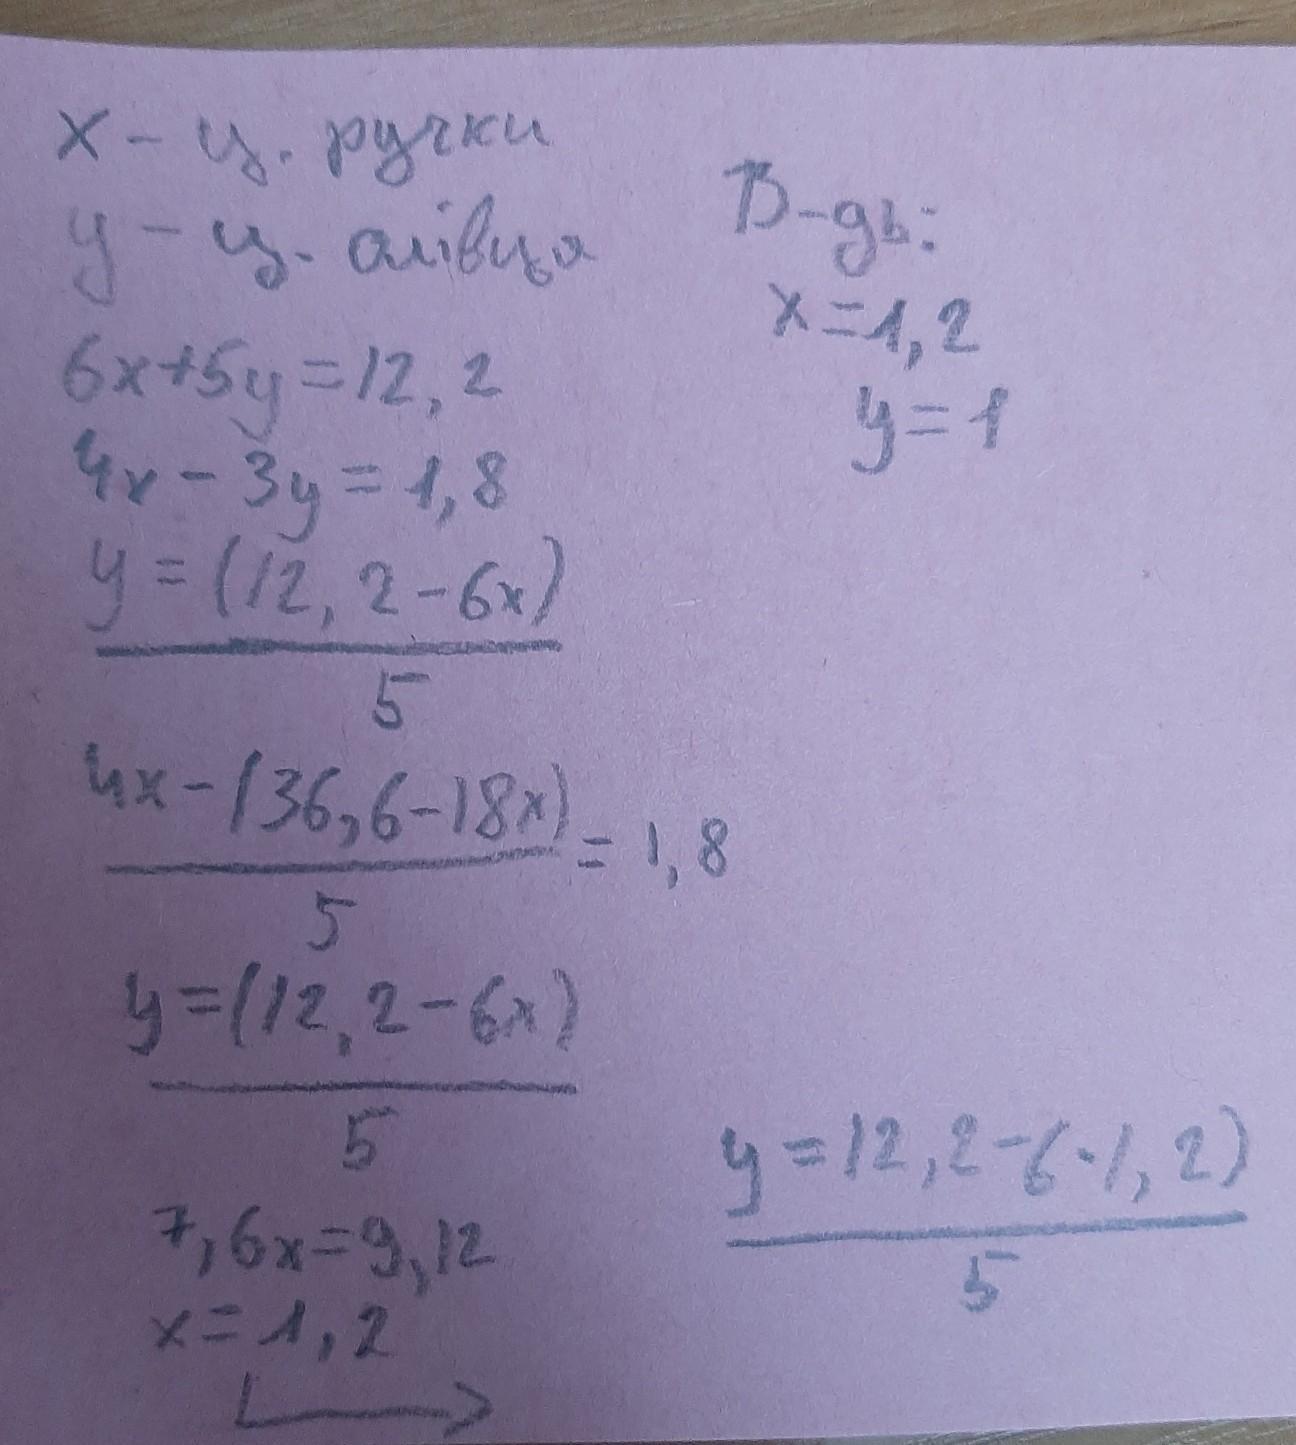 x - ц. ручки
y - ц. олівця
6x+5y=12,2
4x - 3y = 1,8
y = (12, 2 - 6x)
5
4x - (36,6 - 18x)
= 1,8
5
y = (12, 2 - 6x)
5
7,6x = 9,12
x = 1,2
В-дь:
x = 1,2
y = 1
y = 12,2 - 6 · 1,2)
5